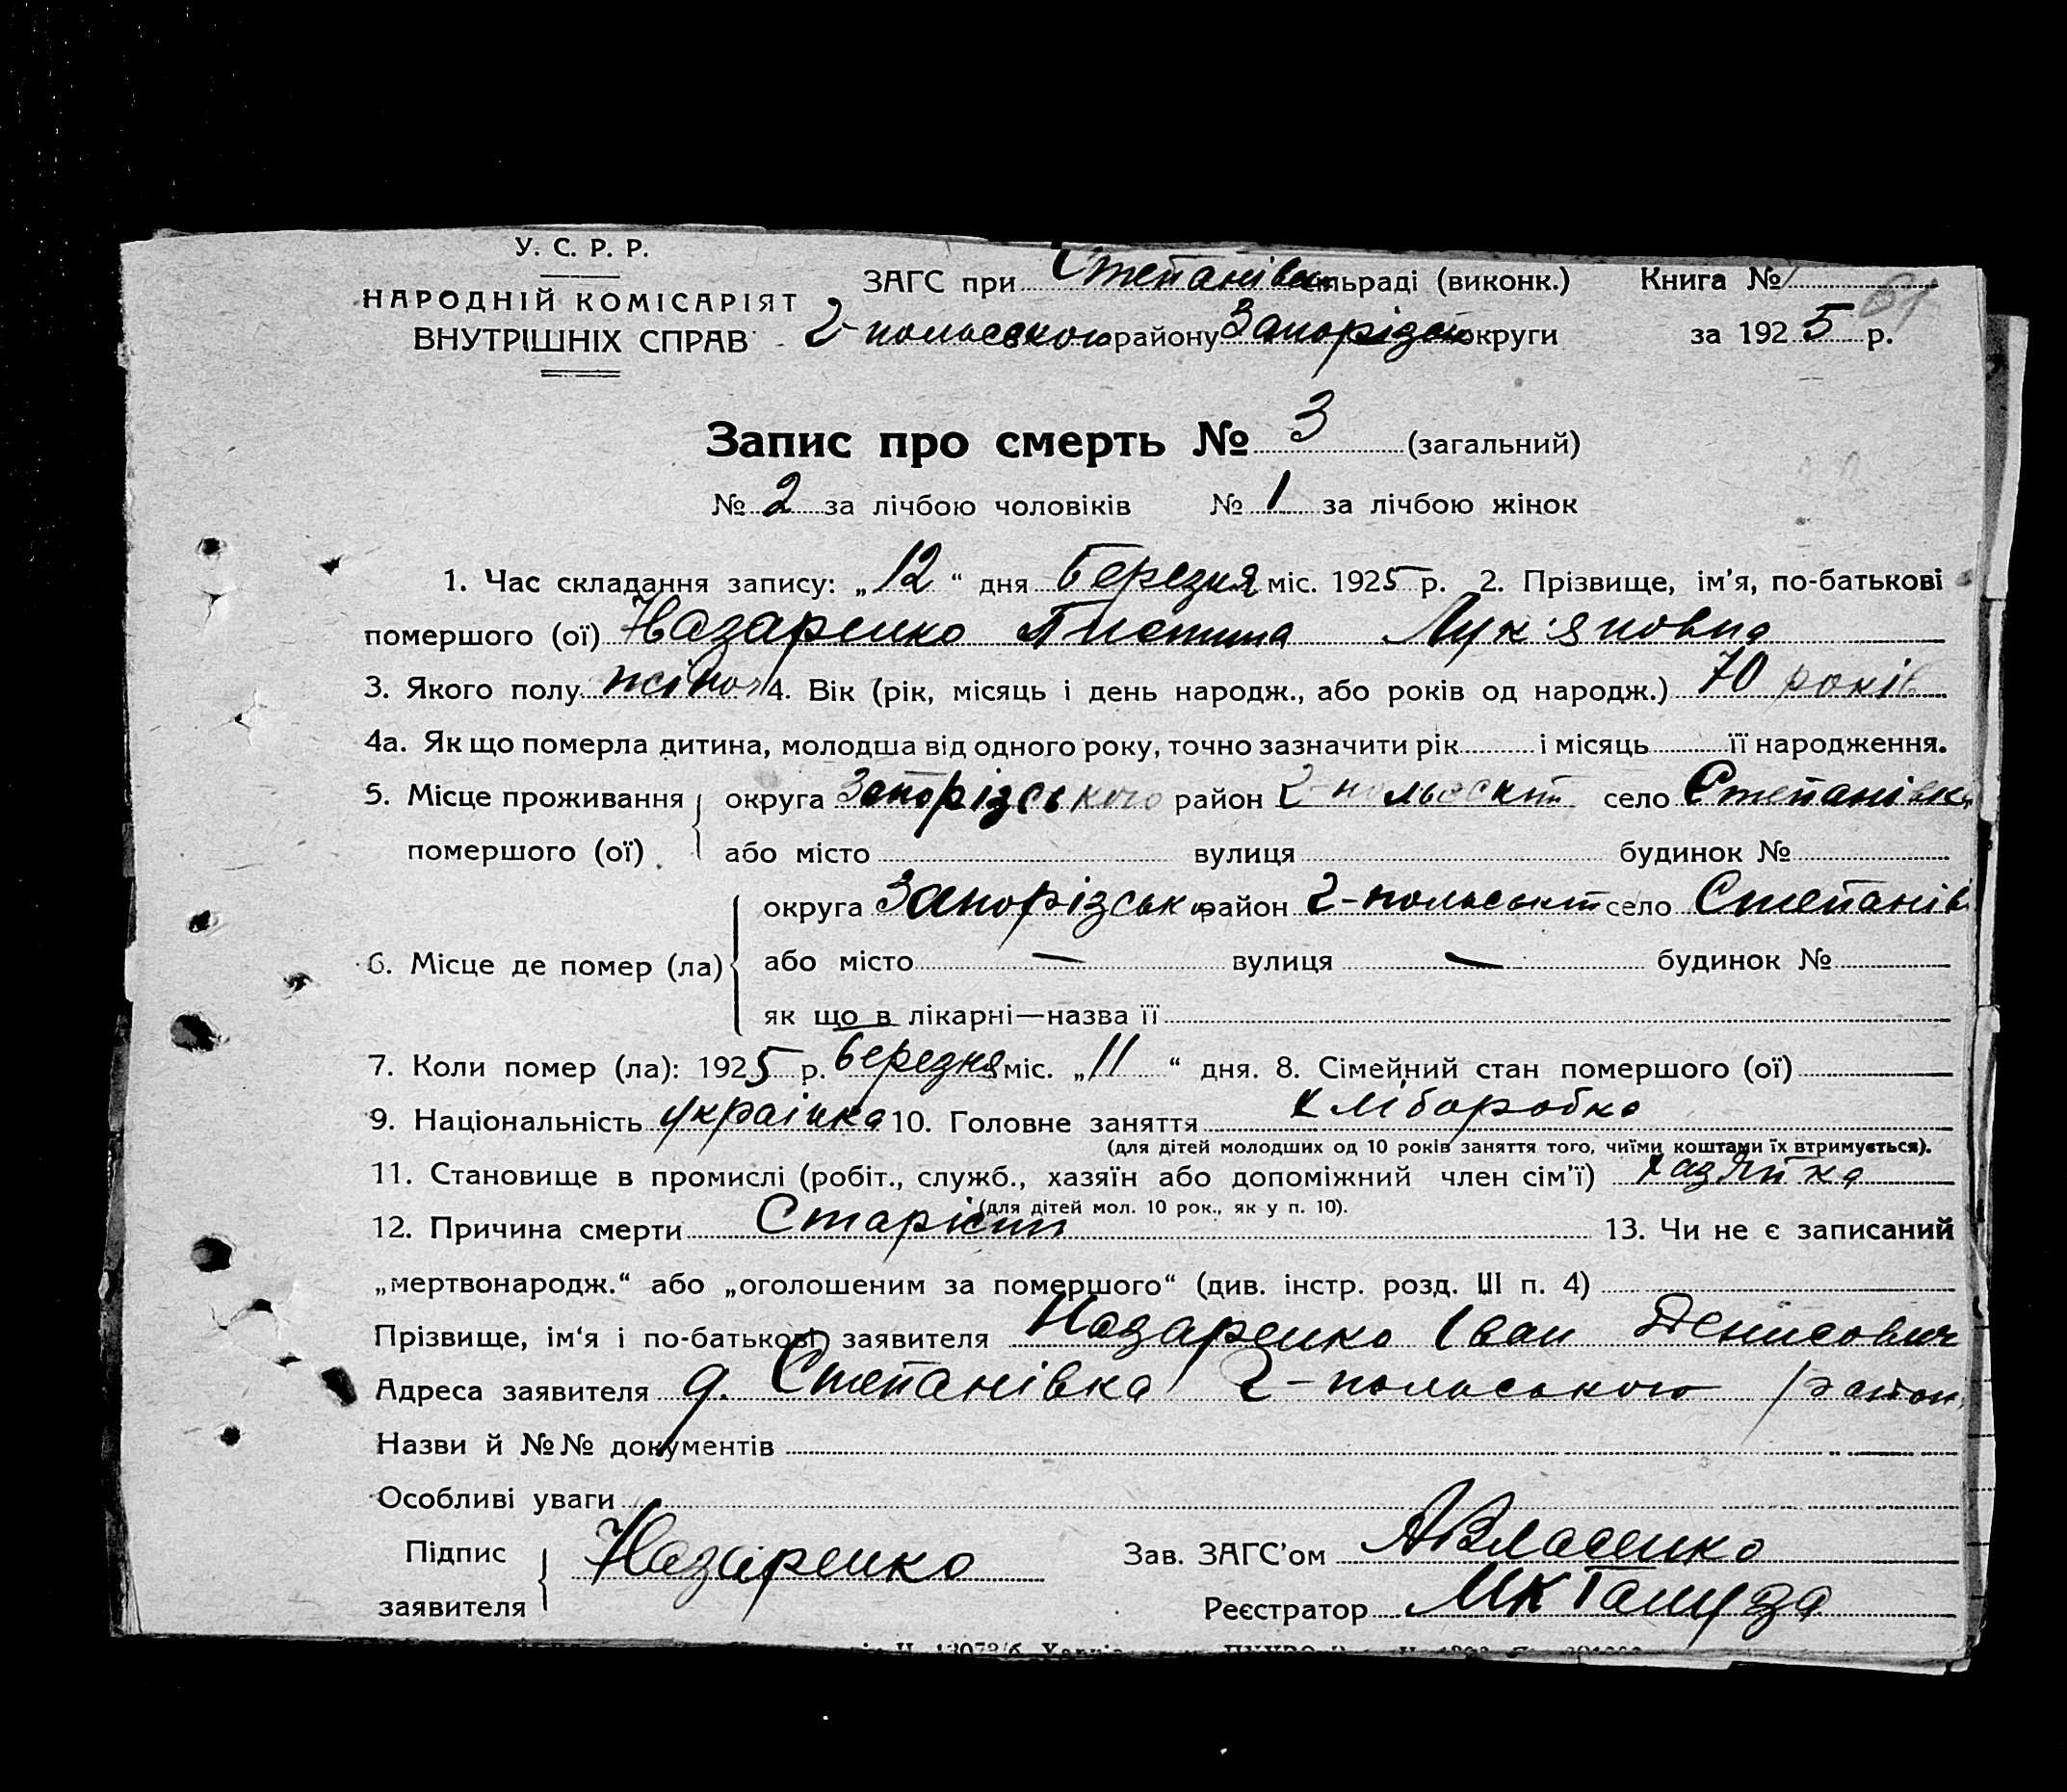 У. С. Р. Р.
НАРОДНІЙ КОМІСАРІЯТ
ВНУТРІШНІХ СПРАВ
ЗАГС при Степанівск сільраді (виконк.) Книга №
2-польського району Запорізськ округи за 1925 р.
Запис про смерть № 3 (загальний)
№ 2 за лічбою чоловіків № 1 за лічбою жінок
1. Час складання запису: „12“ дня березня міс. 1925 р. 2. Прізвище, ім'я, по-батькові
помершого (ої) Назаренко Пистина Лук'яновна
3. Якого полу жіноч 4. Вік (рік, місяць і день народж., або років од народж.) 70 років
4а. Як що померла дитина, молодша від одного року, точно зазначити рік і місяць її народження.
5. Місце проживання помершого (ої) округа Запорізського район 2-польськ село Степанівка
або місто вулиця будинок №
6. Місце де помер (ла) округа Запорізськ район 2-польськ село Степанів
або місто — вулиця — будинок №
як що в лікарні—назва її
7. Коли помер (ла): 1925 р. березня міс. „11“ дня. 8. Сімейний стан помершого (ої)
9. Національність українка 10. Головне заняття хліборобка
(для дітей молодших од 10 років заняття того, чиїми коштами їх втримується).
11. Становище в промислі (робіт., служб., хазяїн або допоміжний член сім'ї) хазяйка
(для дітей мол. 10 рок., як у п. 10).
12. Причина смерти Старість 13. Чи не є записаний
„мертвонародж.“ або „оголошеним за помершого“ (див. інстр. розд. III п. 4)
Прізвище, ім'я і по-батькові заявителя Назаренко Іван Денисович
Адреса заявителя д. Степанівка 2-польського район
Назви й №№ документів
Особливі уваги
Підпис заявителя Назаренко Зав. ЗАГС'ом АВласенко
Реєстратор